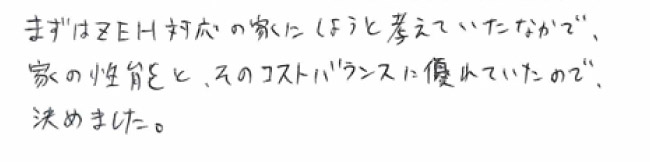 まずはZEH対応の家にしようと考えていたなかで、
家の性能と、そのコストバランスに優れていたので、
決めました。